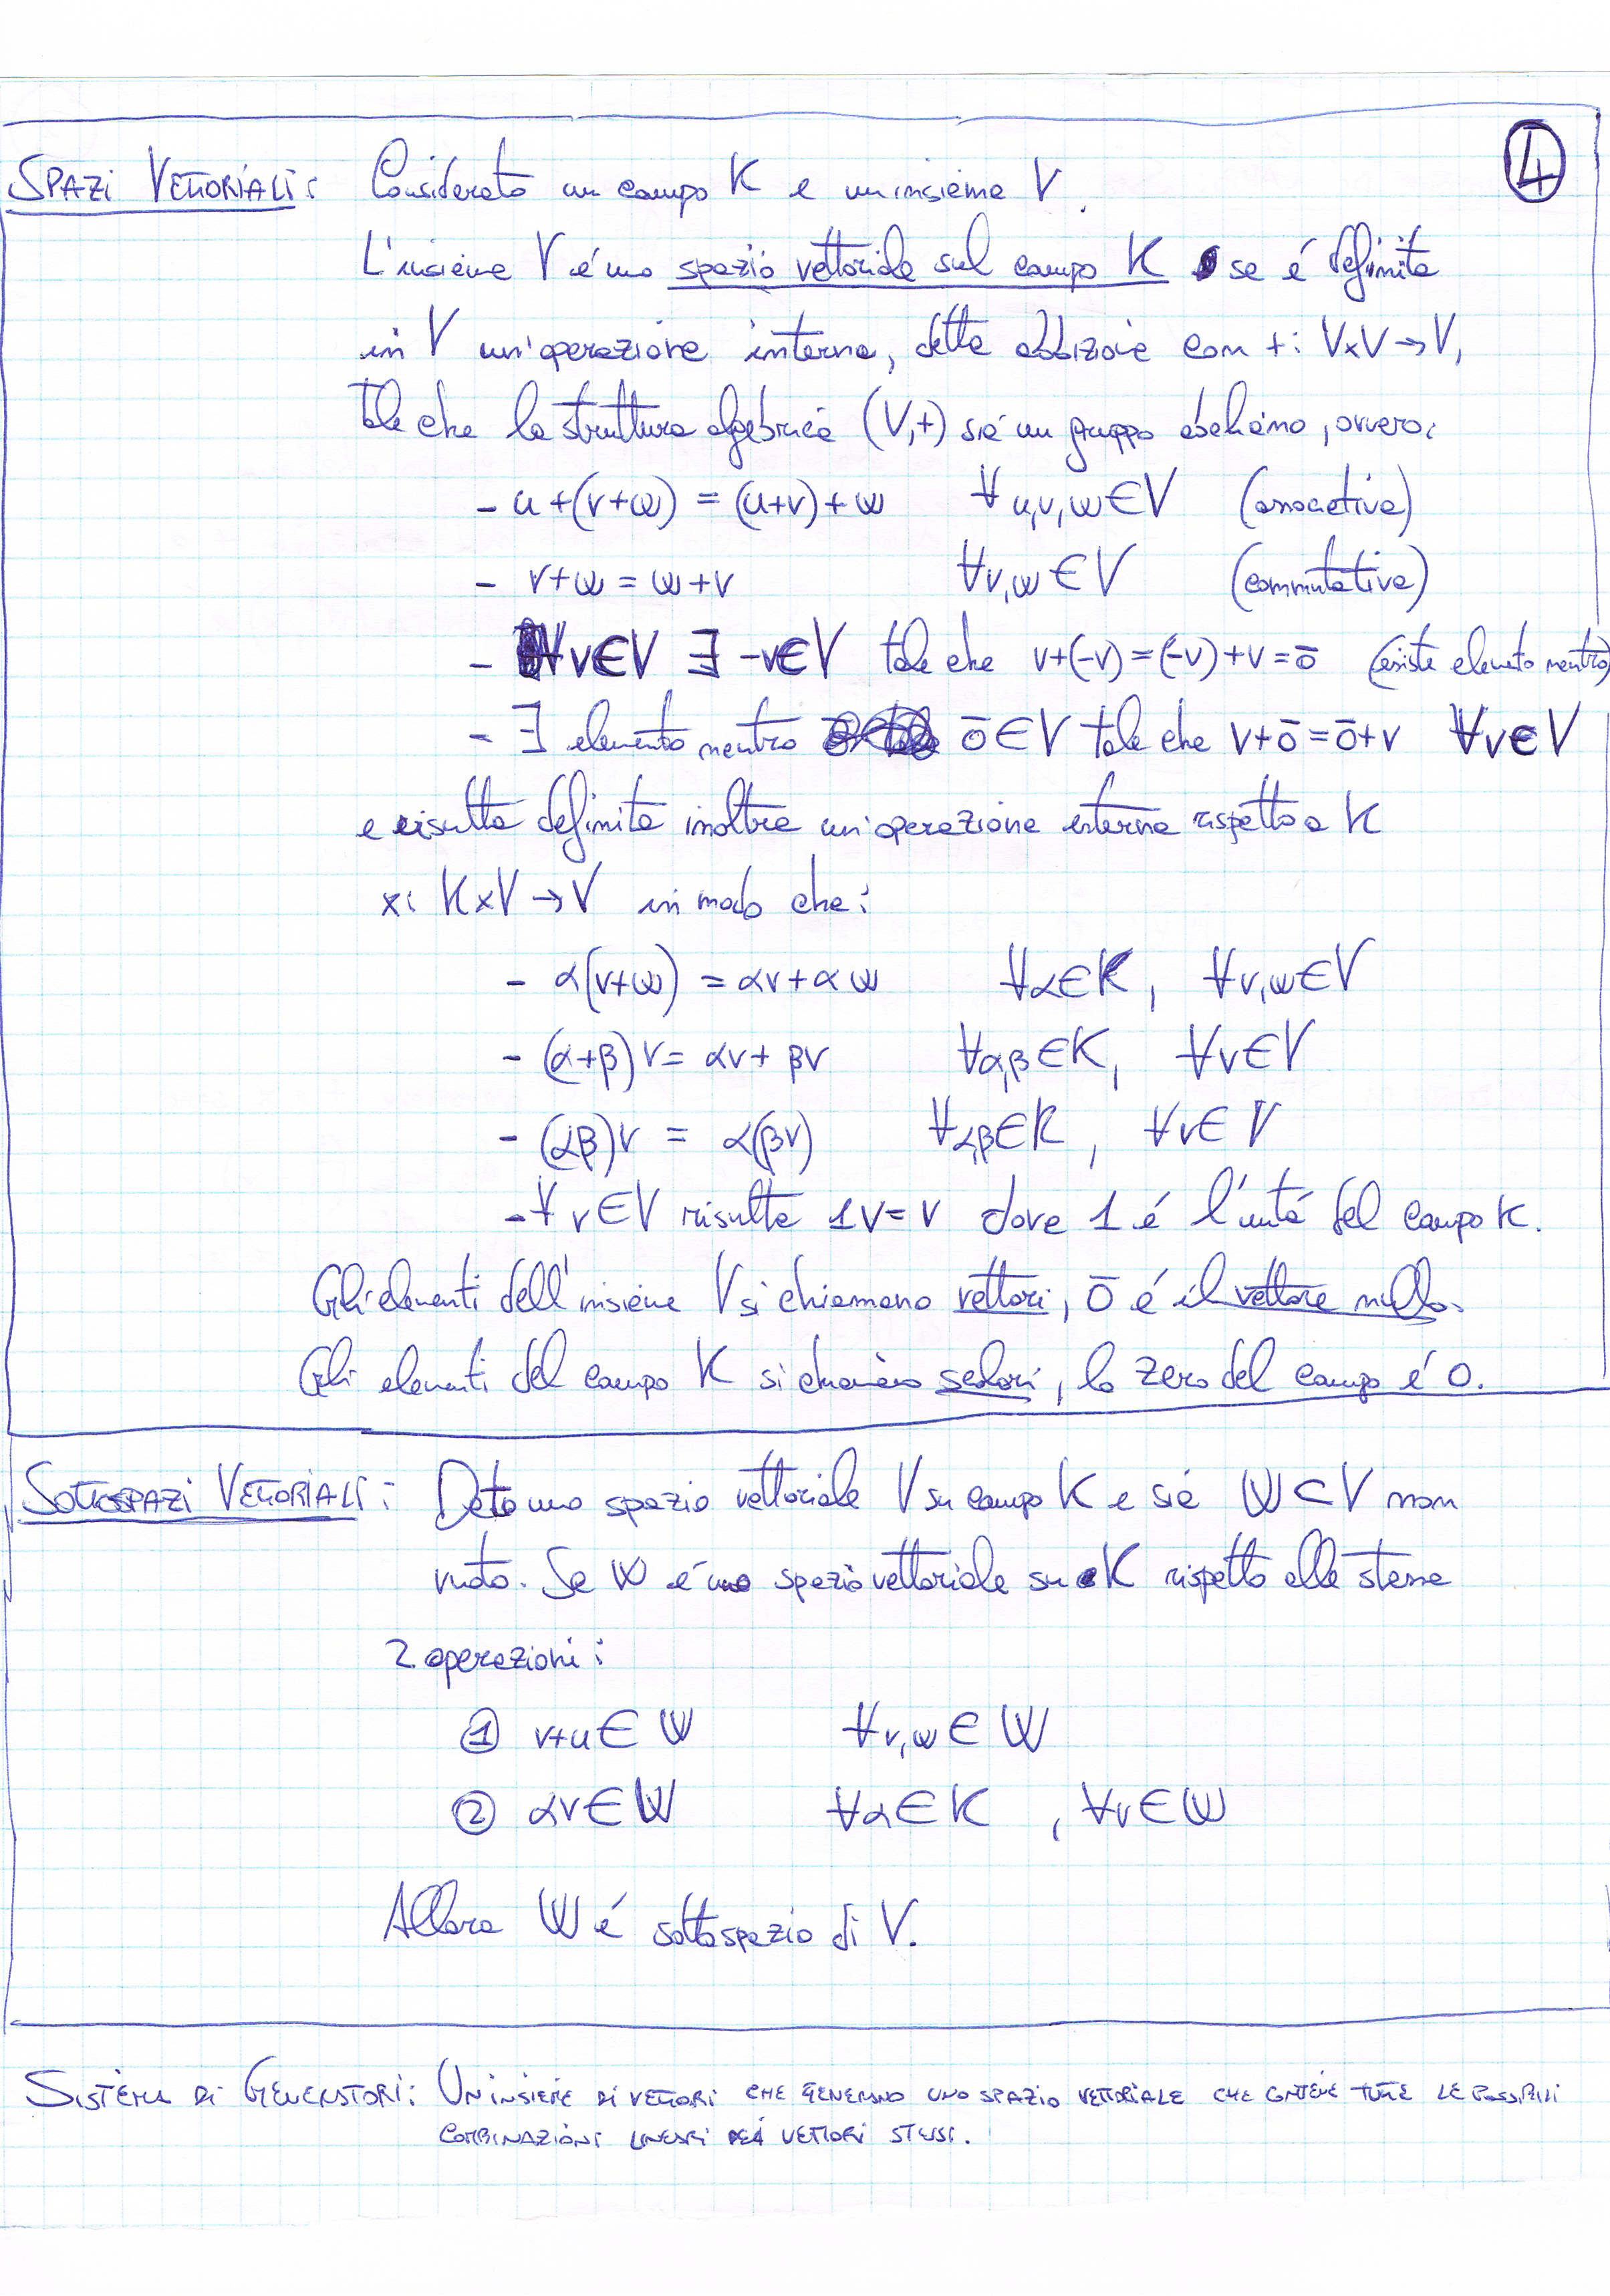 4
SPAZI VETTORIALI: Considerato un campo K e un insieme V.
L'insieme V é uno spazio vettoriale sul campo K se é definita
in V un'operazione interna, detta addizione con +: V×V→V,
tale che la struttura algebrica (V,+) sia un gruppo abeliano, ovvero:
- u+(v+w) = (u+v)+w ∀u,v,w∈V (associativa)
- v+w = w+v ∀v,w∈V (commutativa)
- ∀v∈V ∃ -v∈V tale che v+(-v)=(-v)+v=ō (esiste elemento neutro)
- ∃ elemento neutro ō∈V tale che v+ō=ō+v ∀v∈V
e risulta definita inoltre un'operazione esterna rispetto a K
×: K×V→V in modo che:
- α(v+w) = αv+αw ∀α∈K, ∀v,w∈V
- (α+β)v= αv+βv ∀α,β∈K, ∀v∈V
- (αβ)v = α(βv) ∀α,β∈K, ∀v∈V
- ∀v∈V risulta 1v=v dove 1 é l'unitá del campo K.
Gli elementi dell'insieme V si chiamano vettori, ō é il vettore nullo.
Gli elementi del campo K si chiamano scalari, lo zero del campo é 0.
SOTTOSPAZI VETTORIALI: Dato uno spazio vettoriale V su campo K e sia W⊂V non
vuoto. Se W é uno spazio vettoriale su K rispetto alle stesse
2 operazioni:
① v+u∈W ∀v,w∈W
② αv∈W ∀α∈K, ∀v∈W
Allora W é sottospazio di V.
SISTEMA DI GENERATORI: UN INSIEME DI VETTORI CHE GENERANO UNO SPAZIO VETTORIALE CHE CONTIENE TUTTE LE POSSIBILI
COMBINAZIONI LINEARI DEI VETTORI STESSI.